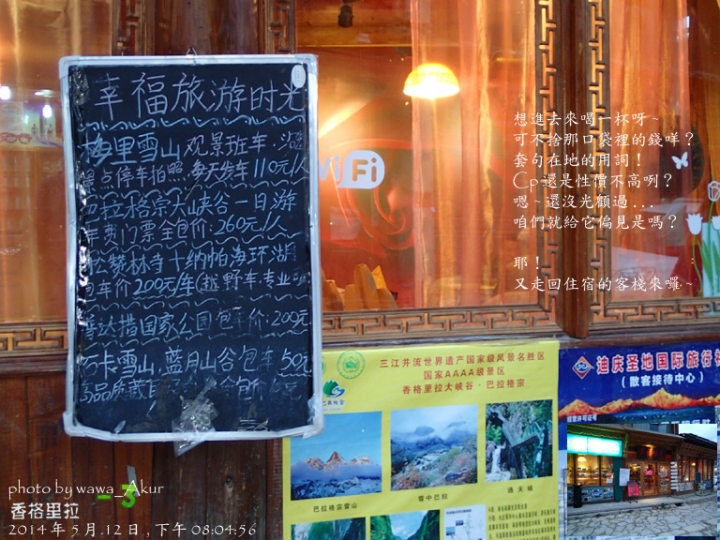 幸福旅游时光
梅里雪山观景班车.沿
景点停车拍照.每天发车110元/人
巴拉格宗大峡谷一日游
车费门票全包价:260元/人
松赞林寺+纳帕海环湖
包车价200元/车(越野车专业
普达措国家公园包车价:200元
石卡雪山.蓝月山谷包车50元
WiFi
想進去來喝一杯呀~
可不捨那口袋裡的錢咩?
套句在地的用詞!
Cp還是性價不高咧?
嗯~還沒光顧過...
咱們就給它偏見是嗎?
耶!
又走回住宿的客棧來囉~
三江并流世界遗产国家级风景名胜区
国家AAAA级景区
香格里拉大峡谷·巴拉格宗
巴拉格宗雪山
雪中巴拉
通天峡
迪庆圣地国际旅行社
(散客接待中心)
photo by wawa_Akur
- 3
香格里拉
2014年5月12日,下午08:04:56